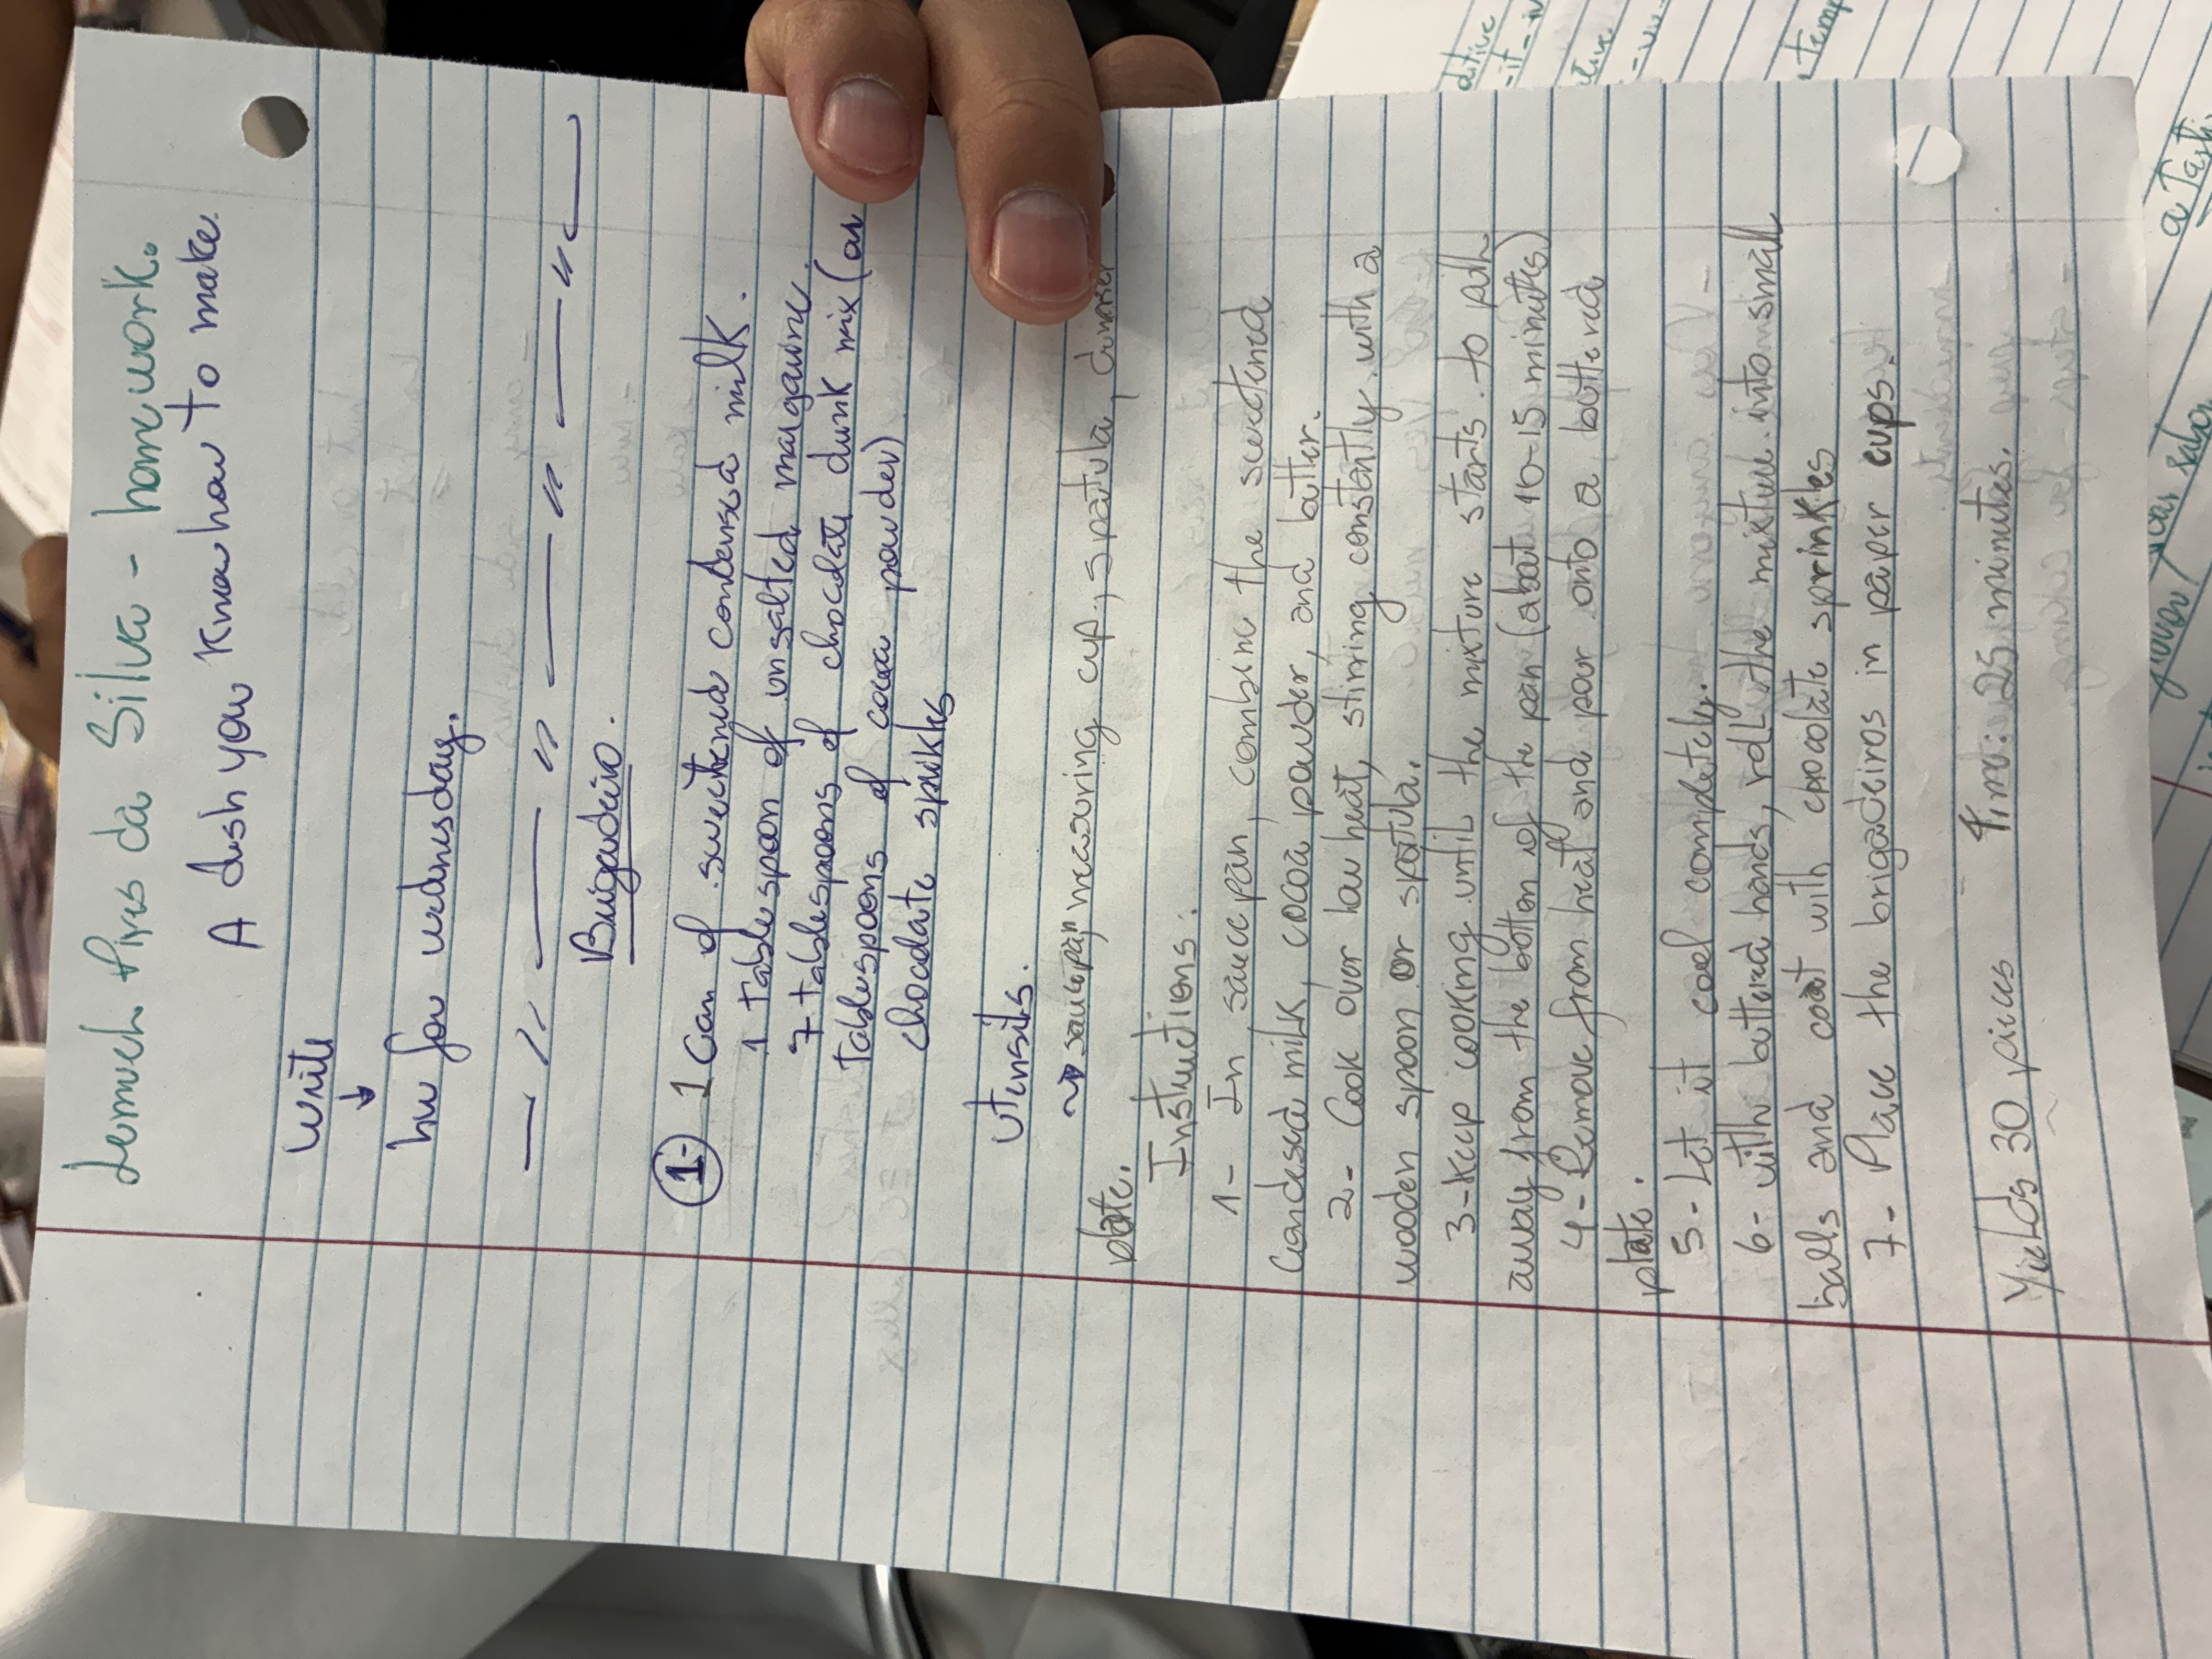 da Silva - homework.
A dish you know how to make.
Write
↓
hw for wednesday.
— " — " — " — " — "
Brigadeiro.
1- 1 Can of sweetened condensed milk.
1 tablespoon of unsalted margarine.
7 tablespoons of chocolate drink mix (or
tablespoons of cocoa powder)
chocolate sprikles
Utensils.
~> saucepan measuring cup, spatula,
plate.
Instructions:
1- In saucepan, combine the sweetened
Condesed milk, cocoa powder, and butter.
2- Cook over low heat, stirring constantly with a
wooden spoon or spatula.
3- Keep cooking until the mixture starts to pull
away from the botton of the pan (about 10-15 minutes)
4- Remove from heat and pour onto a buttered
plate.
5- Let it cool completely.
6- with buttered hands, roll the mixture into small
balls and coat with chocolate sprinkles
7- Place the brigadeiros in paper cups.
Yields 30 pieces Time: 25 minutes.
ditive
-it-iv
a Tasti